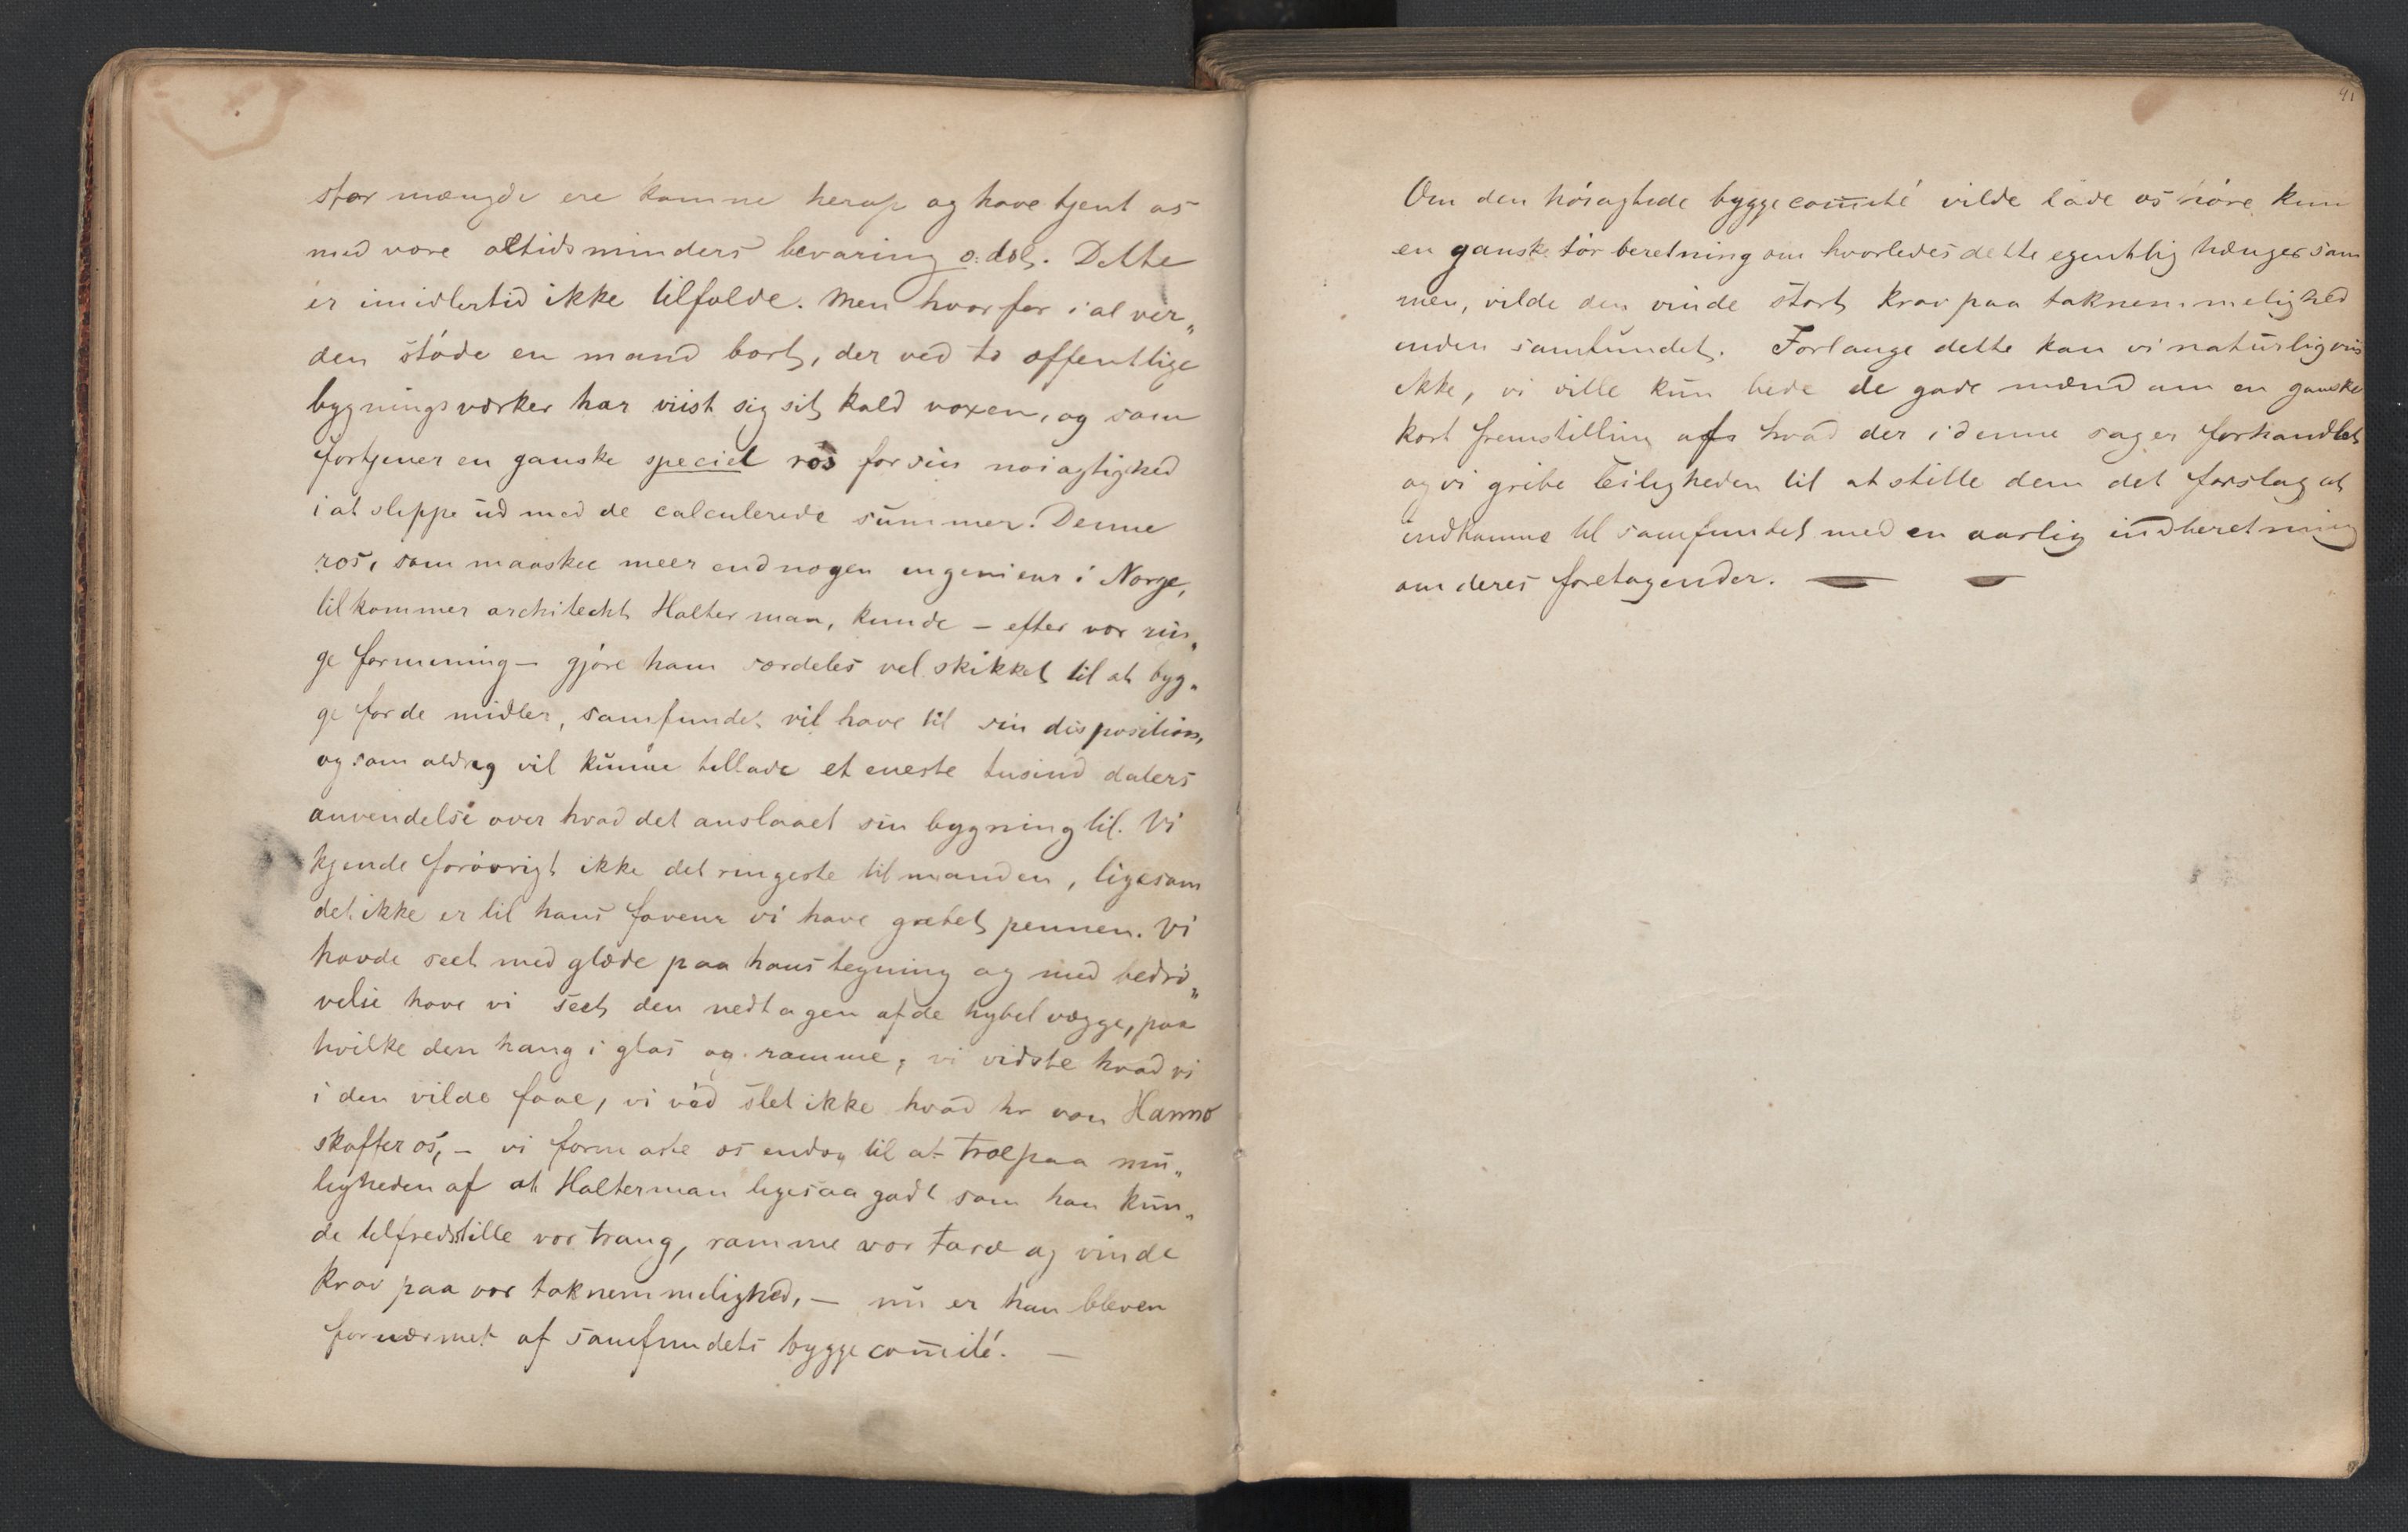 stor mængde ere komne herop og have tjent os
med vore oltidsminders bevaring o. dsl. Dette
er imidlertid ikke tilfælde. Men hvorfor i al ver„
den støde en mand bort, der ved to offentlige
bygningsværker har viist sig sit kald voxen, og som
fortjener en ganske speciel ros for sin nøiagtighed
i at slippe ud med de calculerede summer. Denne
ros, som maaskee meer end nogen ingenieur i Norge,
tilkommer architecht Halterman, kunde – efter vor rin„
ge formening – gjøre ham særdeles vel skikket til at byg„
ge for de midler, samfundet vil have til sin disposition,
og som aldrig vil kunne tillade et eneste tusind dalers
anvendelse over hvad det anslaaet sin bygning til. Vi
kjende forøvrigt ikke det ringeste til manden, ligesom
det ikke er til hans faveur vi have grebet pennen. Vi
havde seet med glæde paa hans tegning og med bedrø„
velse have vi seet den nedtagen af de hybelvægge, paa
hvilke den hang i glas og ramme; vi vidste hvad vi
i den vilde faae, vi véd slet ikke hvad hr von Hanno
skaffer os, – vi formaste os endog til at troe paa mu„
ligheden af at Halterman ligesaa godt som han kun„
de tilfredsstille vor trang, ramme vor tarv og vinde
krav paa vor taknemmelighed, – nu er han bleven
fornærmet af samfundets byggecom̅ité. –
41
Om den høiagtede byggecom̅ité vilde lade os høre kun
en ganske tør beretning om hvorledes dette egentlig hænger sam
men, vilde den vinde stort krav paa taknemmelighed
inden samfundet. Forlange dette kan vi naturligviis
ikke, vi ville kun bede de gode mænd om en ganske
kort fremstilling af hvad der i denne sag er forhandlet
og vi gribe leiligheden til at stille dem det forslag at
indkomme til samfundet med en aarlig indberetning
om deres foretagender. — —